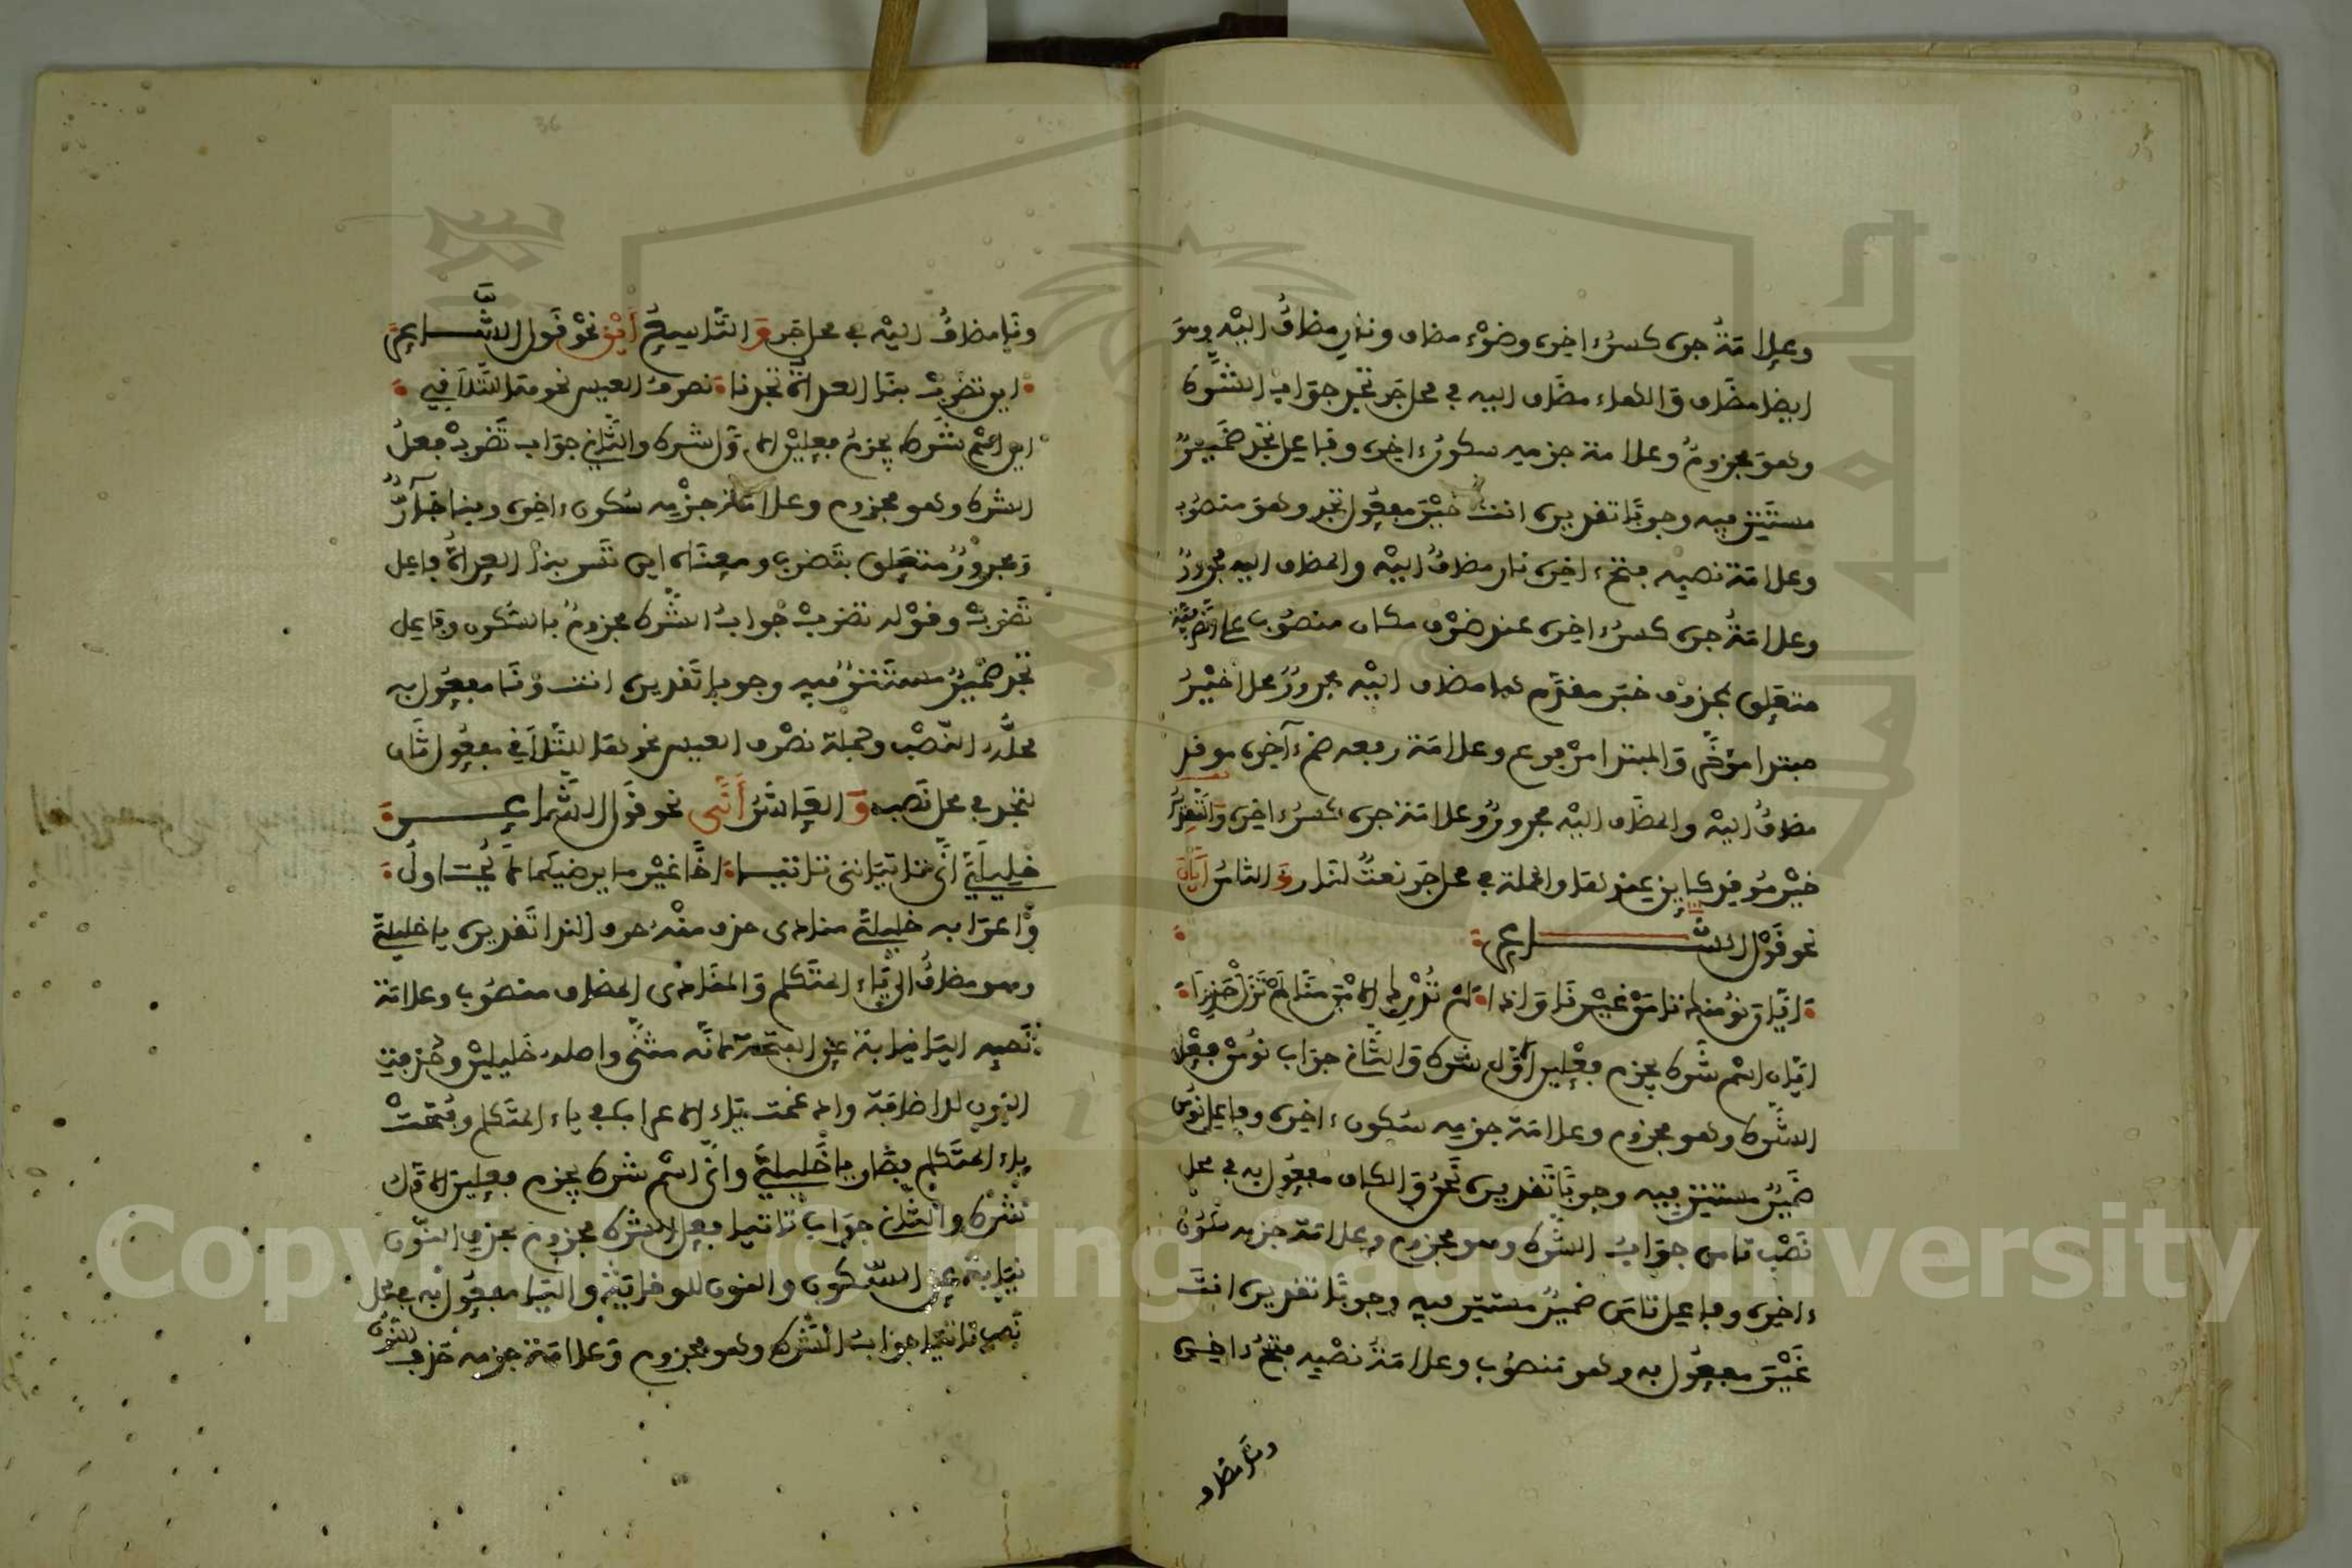 وعلامة جره كسرُ ءاخره وضوْء مضاف ونارٍ مضافُ اليْه وهوَ
ايضا مضَاف وَالهاء مضَاف اليه في محل جَر تجد جوَاب الشَّرط
وهوَ مجزومٌ وعلامة جزمه سكونُ ءاخره وفاعل تجدْ ضَميرٌ
مستَتِر فيه وجوبًا تقديره انت خيْرَ مفعُول تجد وهوَ منصُوب
وعلامَة نصبه فتح ءاخره نار مضافُ اليْه والمضاف اليه مجرورٌ
وعلامَةُ جره كسرُ ءاخره عند ظرْف مكان منصُوب على الظرفية
متعَلِق بمحذوف خبَر مقدَّم ها مضاف اليْه مجرورٌ محلا خيْرُ
مبتدا مؤخَّر وَالمبتدا مرْفوع وعلامَة رفعه ضم ءآخره موقد
مضافُ اليْه والمضَاف اليْه مجرورٌ وعلامَة جره كسرُ ءاخره وَالتقديرُ
خيْرُ مُوقد كاين عند لها والجملة في محل جَر نعتٌ لنار وَ الثامنُ أيَّانَ
نحو قَوْل الشَّاعر
ايَّانَ نؤمنك تامَنْ غيْرنَا وَاذا لمْ تُدْرِك الامْنَ منَّا لَمْ تَزَلْ حَذِرَا
ايَّان اسْم شَرط يجزم فعْلين الاوَّل شرط وَالثَّاني جوَاب نؤمنْ فعْل
الشَّرط وهو مجزوم وعلامَة جزمه سُكون ءاخره وفاعل نؤمن
ضَميرٌ مستتِر فيه وجوبًا تَقديره نَحنُ وَالكاف مفعُول به في محل
نَصْب تامن جوَابُ الشَّرط وهو مجزوم وعلامَة جزمه سُكُونُ
ءاخره وفاعل تامَن ضميرٌ مستتِر فيه وجوبًا تقديره انتَ
غَيْرَ مفعُول به وهو مَنصُوب وعلامَةُ نصْبه فتحُ ءاخره
ونا مضاف
ونَا مضافُ اليْه في محل جَر وَ التَّاسِعُ أيْن نحْو قَول الشَّاعر
اين تضْربْ بنَا العداةُ تجدنا نصرف العيس نحوها للتَّلاقي
اين اسْم شَرط يجزمُ فعليْن الاوَّل شرط والثَّاني جوَاب تَضربْ فعلُ
الشرط وهو مجزوم وعلامَة جزْمه سُكون ءاخره وبنا جَارٌّ
وَمجرورٌ متعَلِق بتَضرب ومعنَاه اين تَسر بنا العداةُ فاعل
تَضربْ وقوْله تجد جَوابُ الشَّرط مجزومٌ بالسُّكون وفاعل
تجد ضَميرٌ مستَتِرٌ فيه وجوبا تَقديره انت ونَا مفعُول به
محلُّه النَّصْب وجملة نصْرف العيس نحوها للتَّلاقي مفعُول ثَان
لتجد في محل نَصبٍ وَ العَاشرُ أنَّى نحو قَول الشَّاعِر
خليليَّ انَّى تاتيَاني تاتيا اخًا غيْر ما يرضيكما لا يُحاولُ
وَاعرَابه خليليَّ منادى حذف منْهُ حرف الندا تَقديره يا خليليَّ
وهو مضافُ الى يَاء المتَكلم وَالمنَادى المضاف منصُوب وعلامَة
نَصبه اليَا نيابة عن الفتحَة لانَّه مثنَّى واصله خَليليْن وحُذفت
النّون للاضافَة وادغمت ياء الاعراب في ياء المتَكلم وفُتحَتْ
ياء المتَكلم فصَار يا خَليليَّ وانَّى اسْم شرط يجزم فعلين الاوَّل
شرط والثَّاني جوَاب تاتيا فعل الشرط مجزوم بحذف النّون
نيَابة عن السُّكون والنون للوقايَة واليَا مفعُول به في محل
نَصب تاتيَا جوَابُ الشَّرط وهو مجزوم وَعلامَة جزمه حَذف النُّون